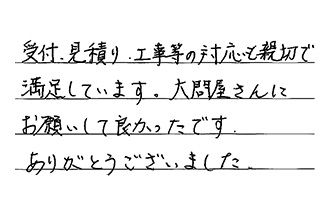 受付、見積り、工事等の対応も親切で
満足しています。大問屋さんに
お願いして良かったです.
ありがとうございました.